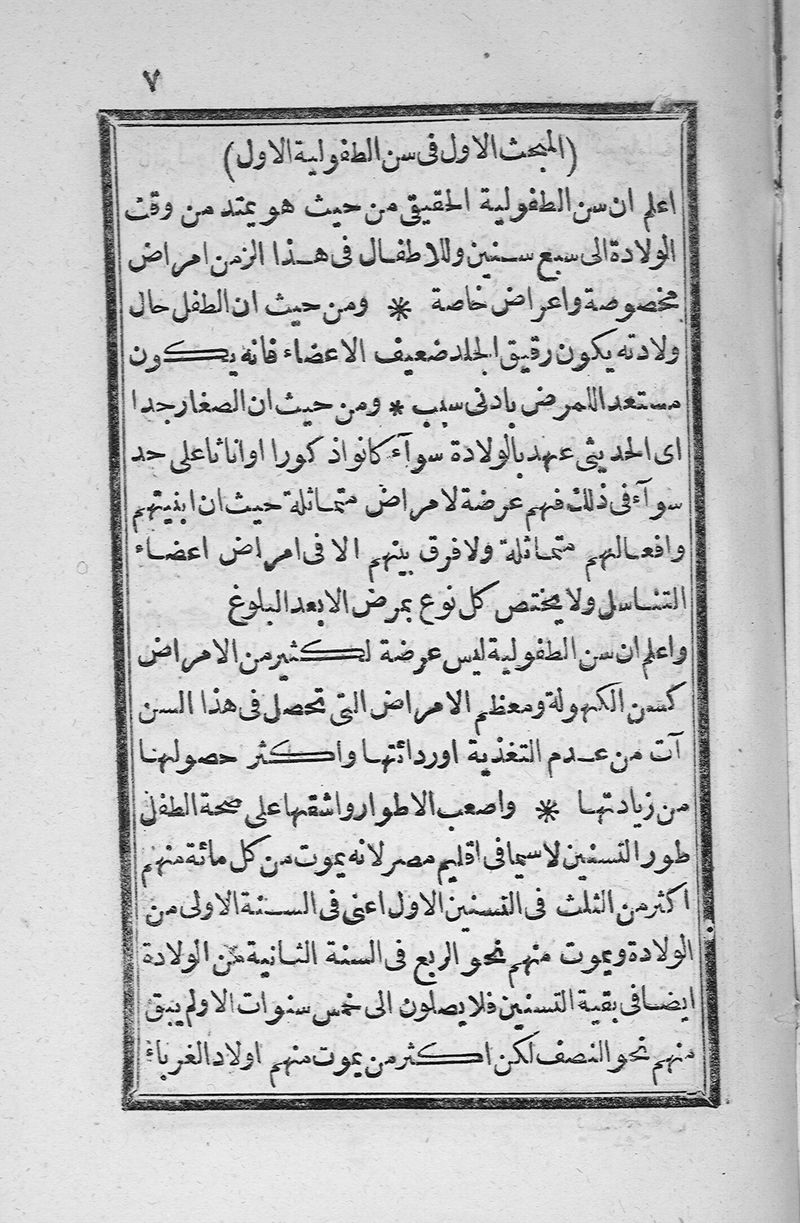 ٧
(المبحث الاول فى سن الطفولية الاول)
اعلم ان سن الطفولية الحقيقى من حيث هو يمتد من وقت
الولادة الى سبع سنين وللاطفال فى هذا الزمن امراض
مخصوصة واعراض خاصة * ومن حيث ان الطفل حال
ولادته يكون رقيق الجلد ضعيف الاعضاء فانه يكون
مستعدا للمرض بادنى سبب * ومن حيث ان الصغار جدا
اى الحديثى عهد بالولادة سوآء كانوا ذكورا او اناثا على حد
سوآء فى ذلك فهم عرضة لامراض متماثلة حيث ان ابنيتهم
وافعالهم متماثلة ولا فرق بينهم الا فى امراض اعضاء
التناسل ولا يختص كل نوع بمرض الا بعد البلوغ
واعلم ان سن الطفولية ليس عرضة لكثير من الامراض
كسن الكهولة ومعظم الامراض التى تحصل فى هذا السن
آت من عدم التغذية او ردائتها واكثر حصولها
من زيادتها * واصعب الاطوار واشقها على صحة الطفل
طور التسنين لاسيما فى اقليم مصر لانه يموت من كل مائة منهم
اكثر من الثلث فى التسنين الاول اعنى فى السنة الاولى من
الولادة ويموت منهم نحو الربع فى السنة الثانية من الولادة
ايضا فى بقية التسنين فلا يصلون الى خمس سنوات الا ولم يبق
منهم نحو النصف لكن اكثر من يموت منهم اولاد الغرباء